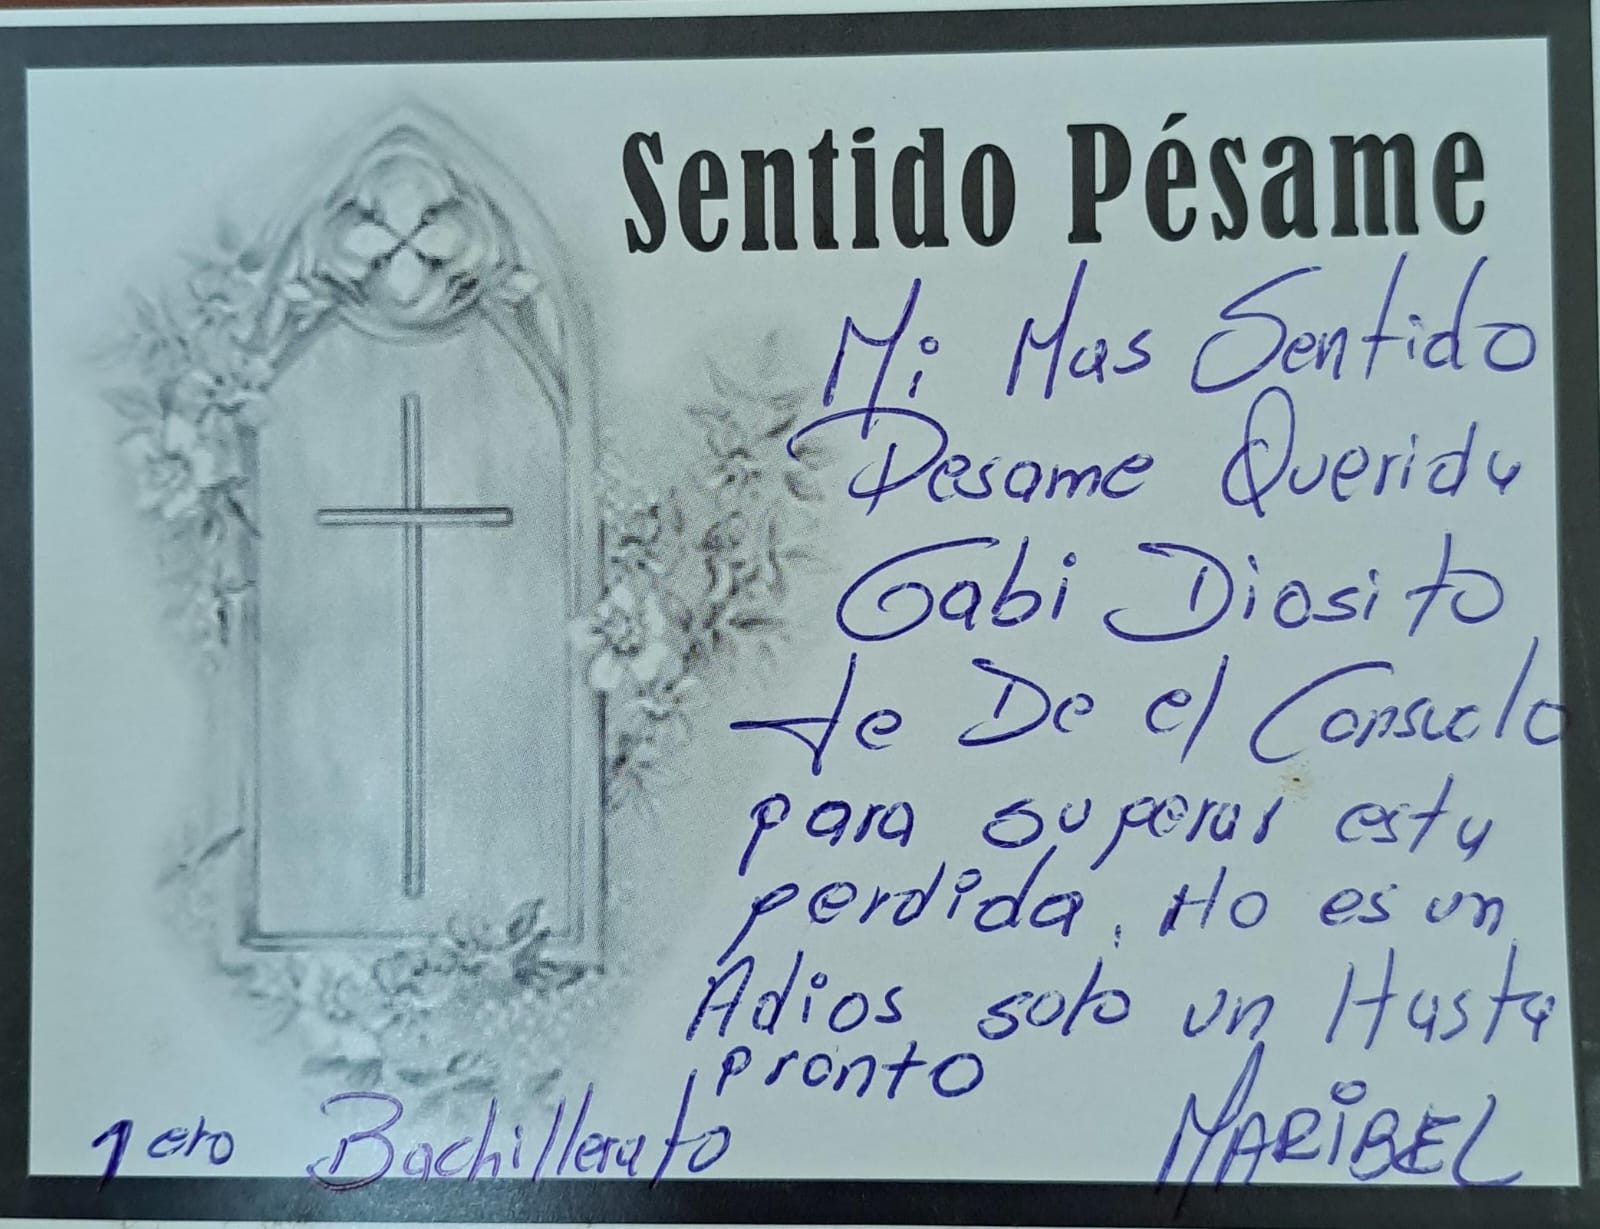 Sentido Pésame
Mi Mas Sentido
Pesame Querida
Gabi Diosito
te De el Consuelo
para superar esta
perdida. No es un
Adios solo un Hasta
pronto
1ero Bachillerato
MARIBEL